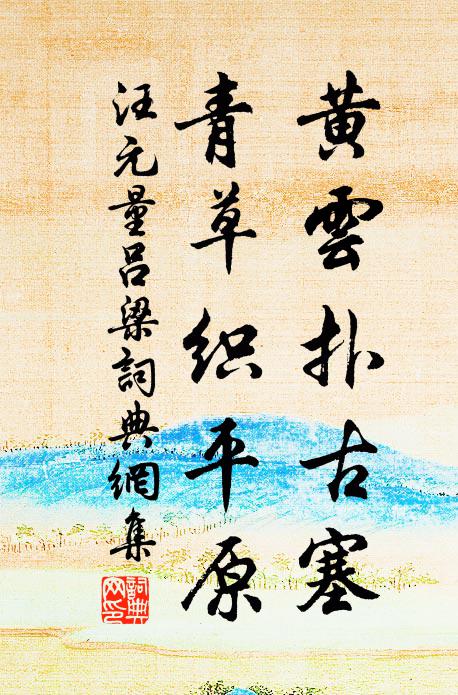 黄雲扑古塞
青草织平原
汪元量吕梁詞典網集
詞典網印